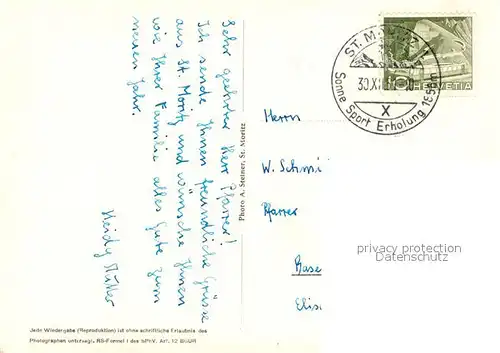 Sehr geehrter Herr Pfarrer!
Ich sende Ihnen freundliche Grüsse
aus St. Moritz und wünsche Ihnen
wie Ihrer Familie alles Gute zum
neuen Jahr.
Heidy
Photo A. Steiner, St. Moritz
Jede Wiedergabe (Reproduktion) ist ohne schriftliche Erlaubnis des
Photographen untersagt. RS-Formel I des SPhV. Art. 12 BGUR
ST. M
30.XII
Sonne Sport Erholung 1856m
X
10
HELVETIA
Herrn
W. Schmi
Pfarrer
Base
Elis
privacy protection
Datenschutz